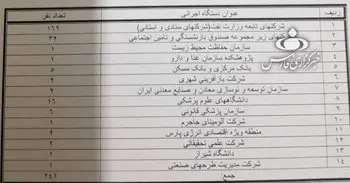 ردیف عنوان دستگاه اجرائی تعداد نفر
۱ شرکتهای تابعه وزارت نفت(شرکتهای ستادی و استانی) ۱۶۹
۲ شرکتهای زیر مجموعه صندوق بازنشستگی و تامین اجتماعی ۳۹
۳ سازمان حفاظت محیط زیست ۱
۴ پژوهشکده سازمان غذا و دارو ۱
۵ بانک مرکزی و بانک مسکن ۵
۶ شرکت بازآفرینی شهری ۲
۷ سازمان توسعه و نوسازی معادن و صنایع معدنی ایران ۲
۸ دانشگاههای علوم پزشکی ۱۶
۹ سازمان پزشکی قانونی ۶
۱۰ شرکت آلومینای جاجرم ۱
۱۱ منطقه ویژه اقتصادی انرژی پارس
۱۲ شرکت علمی تحقیقاتی
۱۳ دانشگاه شیراز
۱۴ شرکت مدیریت طرحهای صنعتی
جمع: ۲۴۱
خبرگزاری فارس